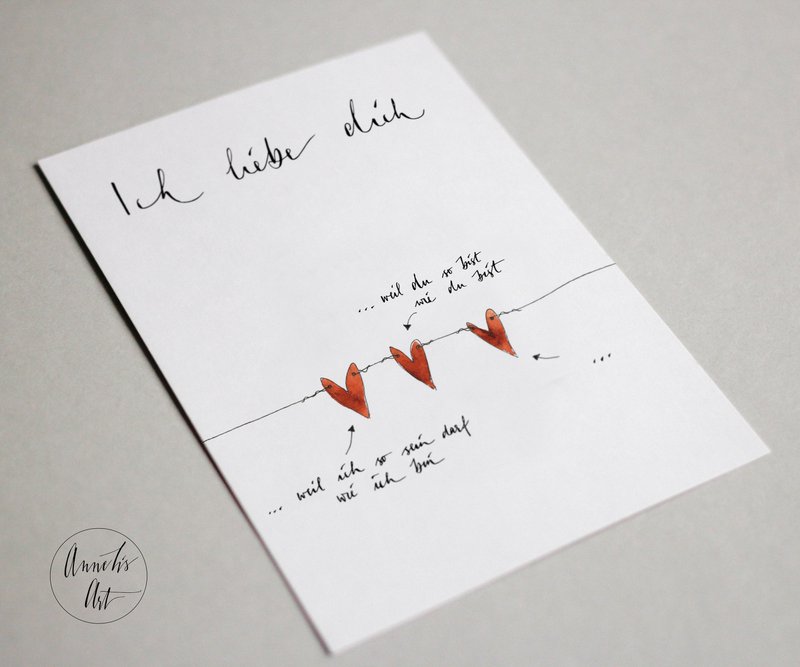 Ich liebe dich
... weil du so bist
wie du bist
...
... weil ich so sein darf
wie ich bin
Anneli's
Art